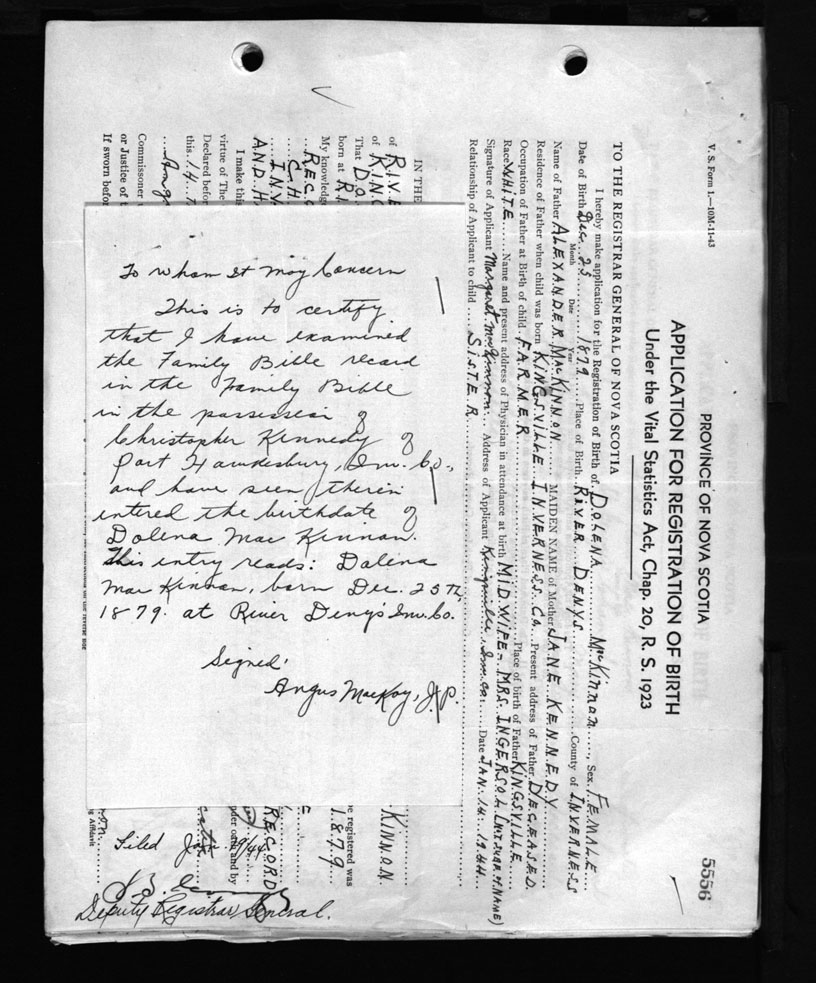 V. S. Form 1.—10M-11-43
PROVINCE OF NOVA SCOTIA
5556
APPLICATION FOR REGISTRATION OF BIRTH
Under the Vital Statistics Act, Chap. 20, R. S. 1923
TO THE REGISTRAR GENERAL OF NOVA SCOTIA
I hereby make application for the Registration of Birth of DOLENA MacKinnon, Sex FEMALE
Date of Birth Dec. 25 1879 Place of Birth RIVER DENYS County of INVERNESS
Month Date Year
Name of Father ALEXANDER MacKINNON MAIDEN NAME of Mother JANE KENNEDY
Residence of Father when child was born KINGSVILLE INVERNESS Co. Present address of Father DECEASED
Occupation of Father at Birth of child FARMER Place of birth of Father KINGSVILLE
Race WHITE Name and present address of Physician in attendance at birth MIDWIFE- MRS. INGERSOL (NOT SURE OF NAME)
Signature of Applicant Margaret MacKinnon Address of Applicant Kingsville, Inv. Co. Date JAN. 14. 1944
Relationship of Applicant to child SISTER
IN THE
of RIVE
of KING
That DO
born at RI
My knowledg
REC
CH
INV
AND H
I make this
virtue of The
Declared befor
this 14
Ang
Commissioner
or Justice of
If sworn befor
KINNON
e registered was
1879
RECORD
der oath and by
g Affidavit
To Whom It May Concern
This is to certify
that I have examined
the Family Bible record
in the Family Bible
in the possession of
Christopher Kennedy of
Port Hawkesbury, Inv. Co.,
and have seen therein
entered the birthdate of
Dolena Mac Kinnon.
This entry reads: Dolena
Mac Kinnon, born Dec. 25th,
1879. at River Deny's Inv. Co.
Signed:
Angus MacKay, J.P.
Filed Jan 19/44
Deputy Registrar General.